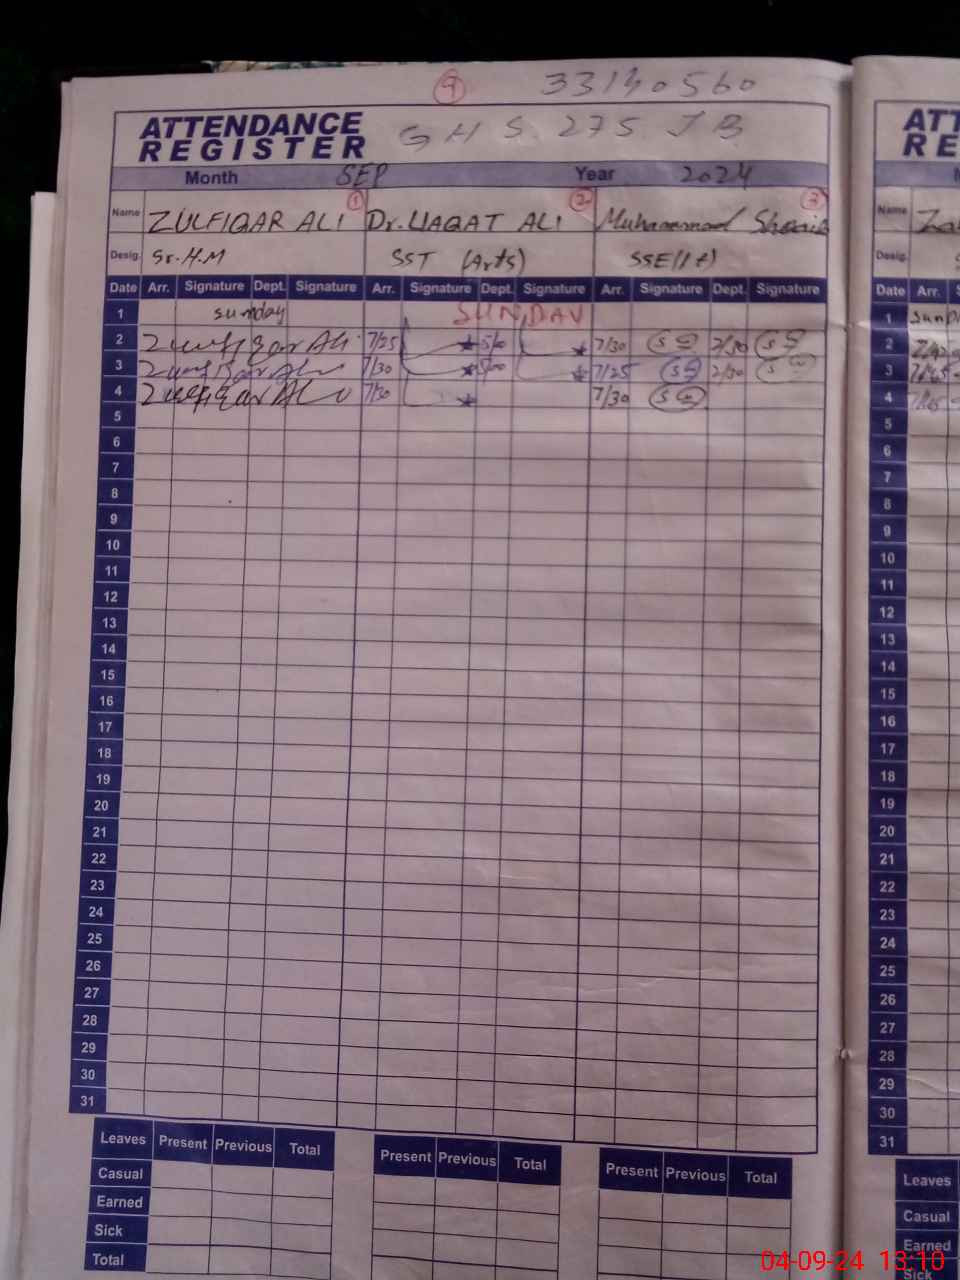 9 33140560
ATTENDANCE
REGISTER
GHS. 275 JB
Month SEP Year 2024
Name ZULFIQAR ALI 1 Dr. LIAQAT ALI 2 Muhammad 3
Desig. Sr. H.M SST (Arts) SSE(It)
Date Arr. Signature Dept. Signature Arr. Signature Dept. Signature Arr. Signature Dept. Signature
1 sunday SUNDAY
2 Zulfiqar Ali 7/25 7/30 2/30
3 Zulfiqar Ali 7/30 7/25 2/30
4 Zulfiqar Ali 7/30 7/30
5
6
7
8
9
10
11
12
13
14
15
16
17
18
19
20
21
22
23
24
25
26
27
28
29
30
31
Leaves Present Previous Total Present Previous Total Present Previous Total
Casual
Earned
Sick
Total
ATT
RE
Name
Desig.
Date Arr. S
1
2
3
4
5
6
7
8
9
10
11
12
13
14
15
16
17
18
19
20
21
22
23
24
25
26
27
28
29
30
31
Leaves
Casual
Earned
Sick
04-09-24 13:10